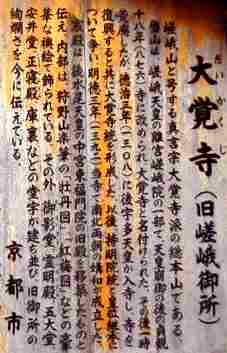 だいかくじ
大覚寺（旧嵯峨御所）
嵯峨山と号する真言宗大覚寺派の総本山である。
当山は、嵯峨天皇の離宮嵯峨院の一部で、天皇崩御の後の貞観
十八年（八七六）寺に改められ、大覚寺と名付けられた。その後一時
荒廃したが、徳治三年（一三〇八）に後宇多天皇が入寺し、寺を
復興すると共に大覚寺統を形成した。以後、持明院統と皇位継承に
ついて争い、明徳三年（一三九二）当寺で南北両朝の媾和が成立した。
宸殿は後水尾天皇の中宮東福門院の旧殿を移築したものと
伝え、内部は、狩野山楽筆の「牡丹図」、「紅梅図」などの豪
華な襖絵で飾られている。その外、御影堂、霊明殿、五大堂、
安井堂、正寝殿、庫裏などの堂宇が建ち並び、旧御所の
絢爛さを今に伝えている。
京都市